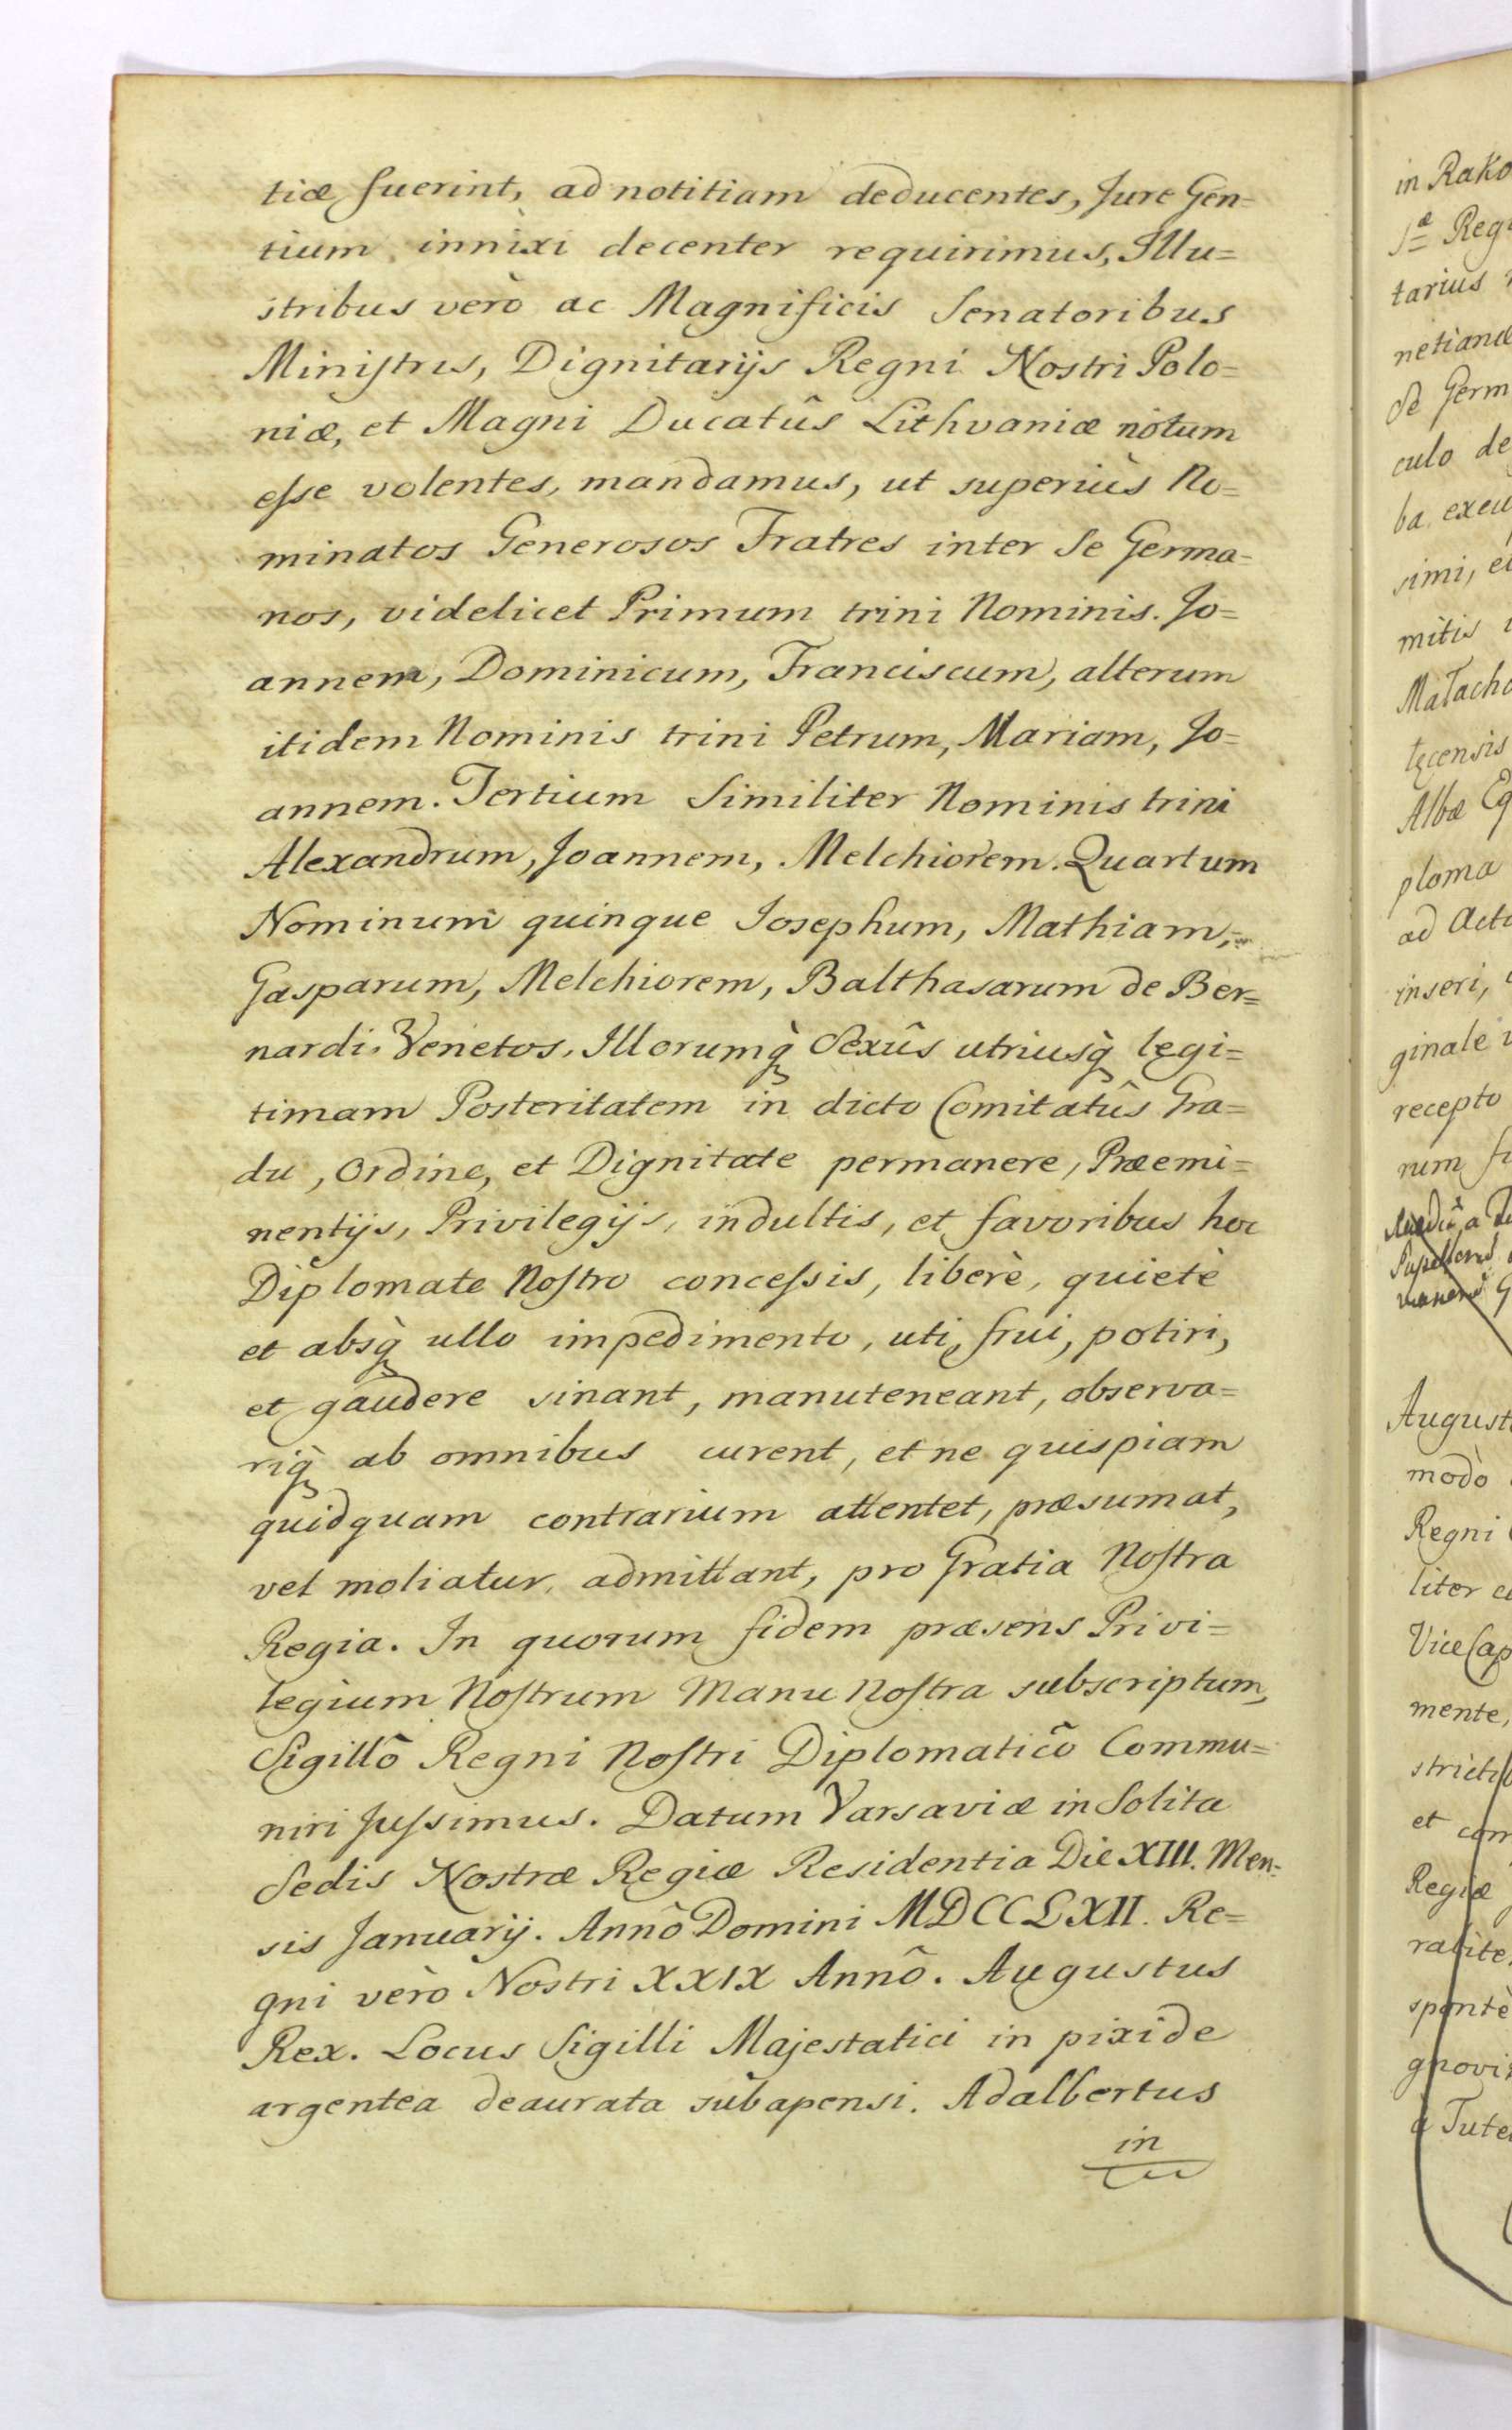 tiæ fuerint, ad notitiam deducentes, Jure Gen=
tium innixi decenter requirimus, Illu=
stribus verò ac Magnificis Senatoribus
Ministris, Dignitarijs Regni Nostri Polo=
niæ, et Magni Ducatûs Lithvaniæ notum
esse volentes, mandamus, ut superiùs No=
minatos Generosos Fratres inter se Germa=
nos, videlicet Primum trini Nominis. Jo=
annem, Dominicum, Franciscum, alterum
itidem Nominis trini Petrum, Mariam, Jo=
annem. Tertium Similiter Nominis trini
Alexandrum, Joannem, Melchiorem. Quartum
Nominum quinque Josephum, Mathiam,
Gasparum, Melchiorem, Balthasarum de Ber=
nardi Venetos, Illorumq̀ Sexûs utriusq̀ legi=
timam Posteritatem in dicto Comitatûs Gra=
du, Ordine, et Dignitate permanere, Præemi=
nentijs, Privilegijs, indultis, et favoribus hoc
Diplomate Nostro concessis, liberè, quietè
et absq̀ ullo impedimento, uti, frui, potiri,
et gaudere sinant, manuteneant, observa=
riq̀ ab omnibus curent, et ne quispiam
quidquam contrarium attentet, præsumat,
vel moliatur, admittant, pro Gratia Nostra
Regia. In quorum fidem præsens Privi=
legium Nostrum Manu Nostra subscriptum,
Sigillô Regni Nostri Diplomaticô Commu=
niri Jussimus. Datum Varsaviæ in Solita
Sedis Nostræ Regiæ Residentia Die XIII. Men=
sis Januarij. Annô Domini MDCCLXII. Re=
gni verò Nostri XXIX Annô. Augustus
Rex. Locus Sigilli Majestatici in pixide
argentea deaurata subapensi. Adalbertus
in
in Rako
Sæ Reg
tarius
netianæ
de Germ
culo de
ba, exeu
simi, e
mitis
Małacho
łęcensis
Albæ Eq
ploma
ad Act
inseri,
ginale
recepto
rum
August
modò
Regni
liter
Vice Cap
mente,
strict
et com
Regiæ
ralite
spontè
gnovi
à Tute